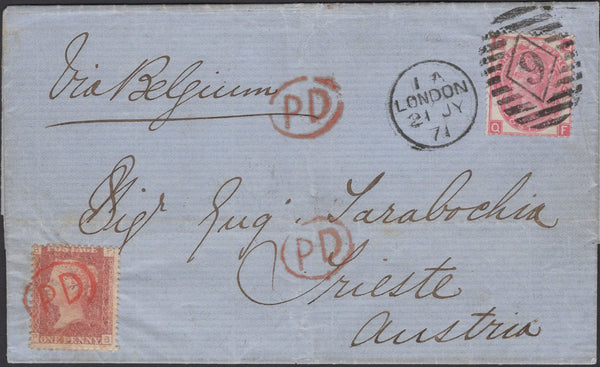 Via Belgium
PD
1 A
LONDON
21 JY
71
9
Q F
Sigr Eug. Tarabochia
PD
Trieste
Austria
POSTAGE
PD
ONE PENNY